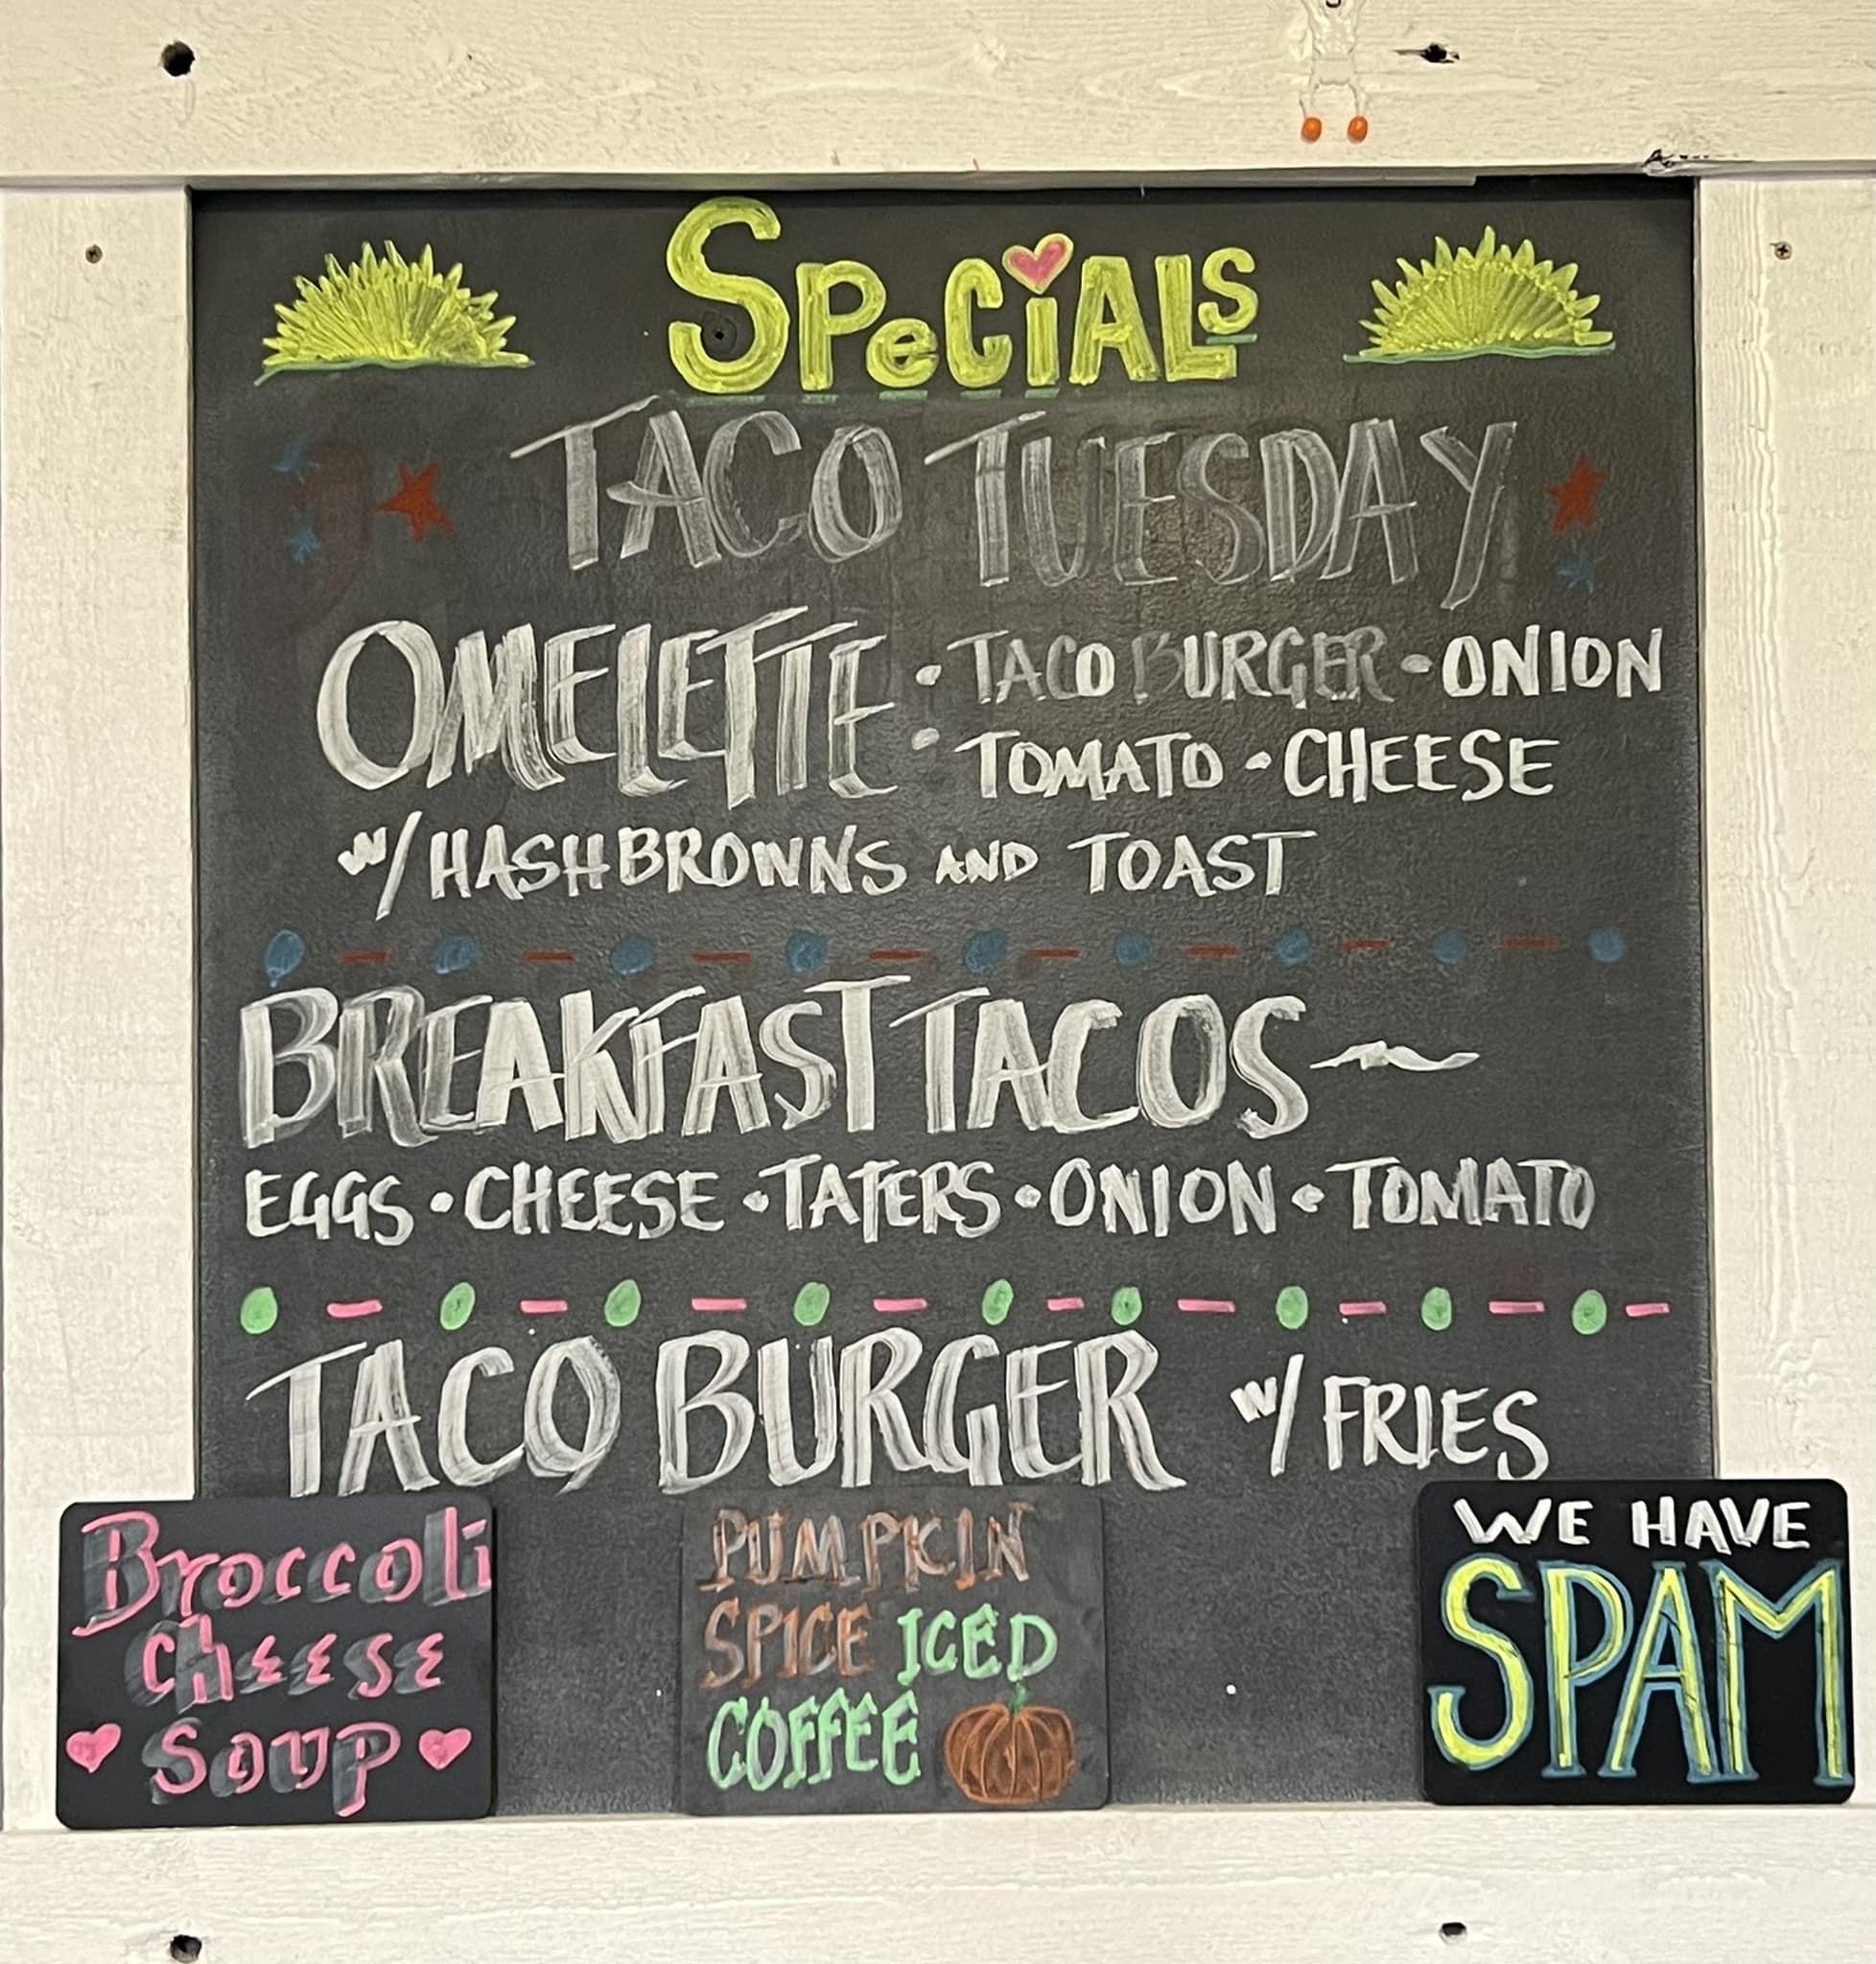 SPeCiALs
TACO TUESDAY
OMELETTE : TACO BURGER • ONION
TOMATO • CHEESE
W/ HASHBROWNS AND TOAST
BREAKFAST TACOS ~
EGGS • CHEESE • TATERS • ONION • TOMATO
TACO BURGER W/ FRIES
Broccoli
CHEESE
SOUP
PUMPKIN
SPICE ICED
COFFEE
WE HAVE
SPAM